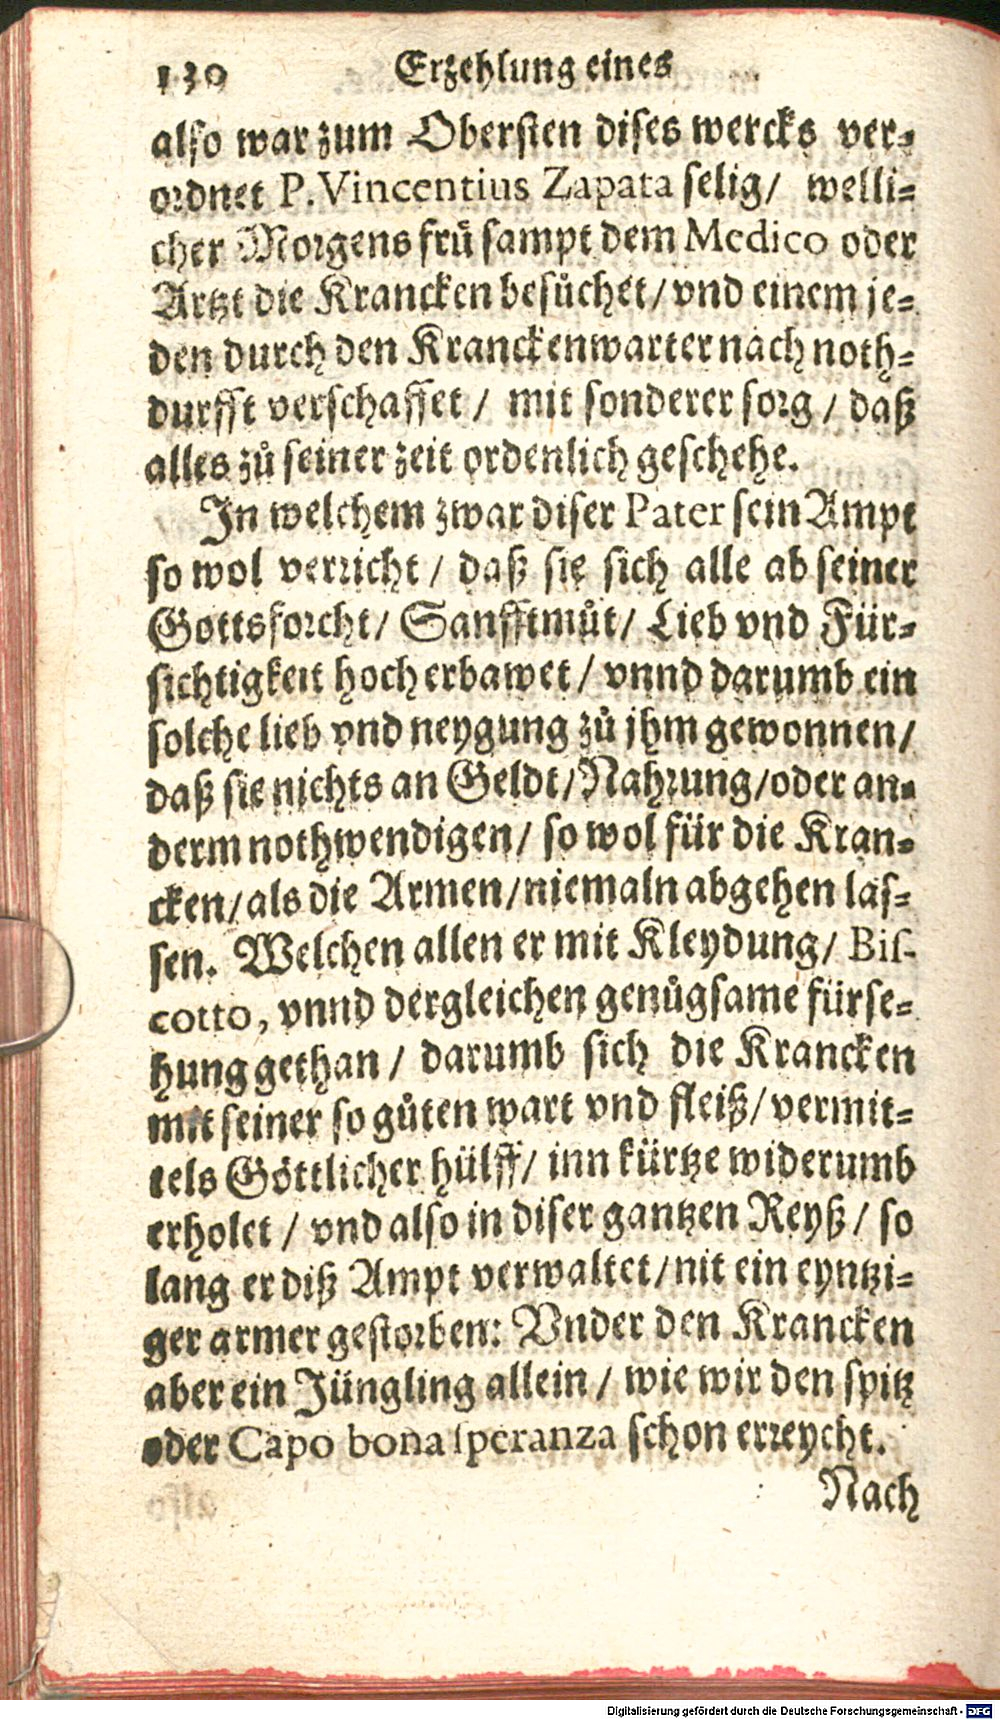 130 Erzehlung eines
also war zum Obersten dises wercks ver-
ordnet P. Vincentius Zapata selig/ welli-
cher Morgens frů sampt dem Medico oder
Artzt die Krancken besůchet/ vnd einem je-
den durch den Kranckenwarter nach noth-
durfft verschaffet/ mit sonderer sorg/ daß
alles zů seiner zeit ordenlich geschehe.
In welchem zwar diser Pater sein Ampt
so wol verricht/ daß sie sich alle ab seiner
Gottsforcht/ Sanfftmůt/ Lieb vnd Für-
sichtigkeit hoch erbawet/ vnnd darumb ein
solche lieb vnd neygung zů jhm gewonnen/
daß sie nichts an Geldt/ Nahrung/ oder an-
derm nothwendigen/ so wol für die Kran-
cken/ als die Armen/ niemaln abgehen las-
sen. Welchen allen er mit Kleydung/ Bis-
cotto, vnnd dergleichen genůgsame fürse-
hung gethan/ darumb sich die Krancken
mit seiner so gůten wart vnd fleiß/ vermit-
tels Göttlicher hülff/ inn kürtze widerumb
erholet/ vnd also in diser gantzen Reyß/ so
lang er diß Ampt verwaltet/ nit ein eyntzi-
ger armer gestorben: Vnder den Krancken
aber ein Jüngling allein/ wie wir den spitz
oder Capo bona speranza schon erreycht.
Nach
Digitalisierung gefördert durch die Deutsche Forschungsgemeinschaft - DFG